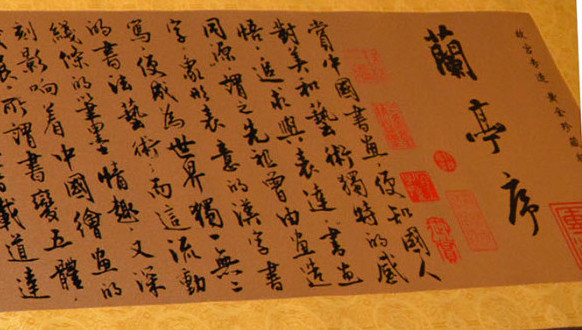 故宮南遷 黃金珍藏
蘭亭序
賞中國書畫便知國人
對美和藝術獨特的感
悟.追求與表達.書畫
同源.謂之先祖曾由畫造
字.象形表意的漢字書
寫.便成為世界獨一無二
的書法藝術.而這流動
綫條的筆墨情趣.又深
刻影响着中國繪畫的
發展.所謂書變五體.
載道達